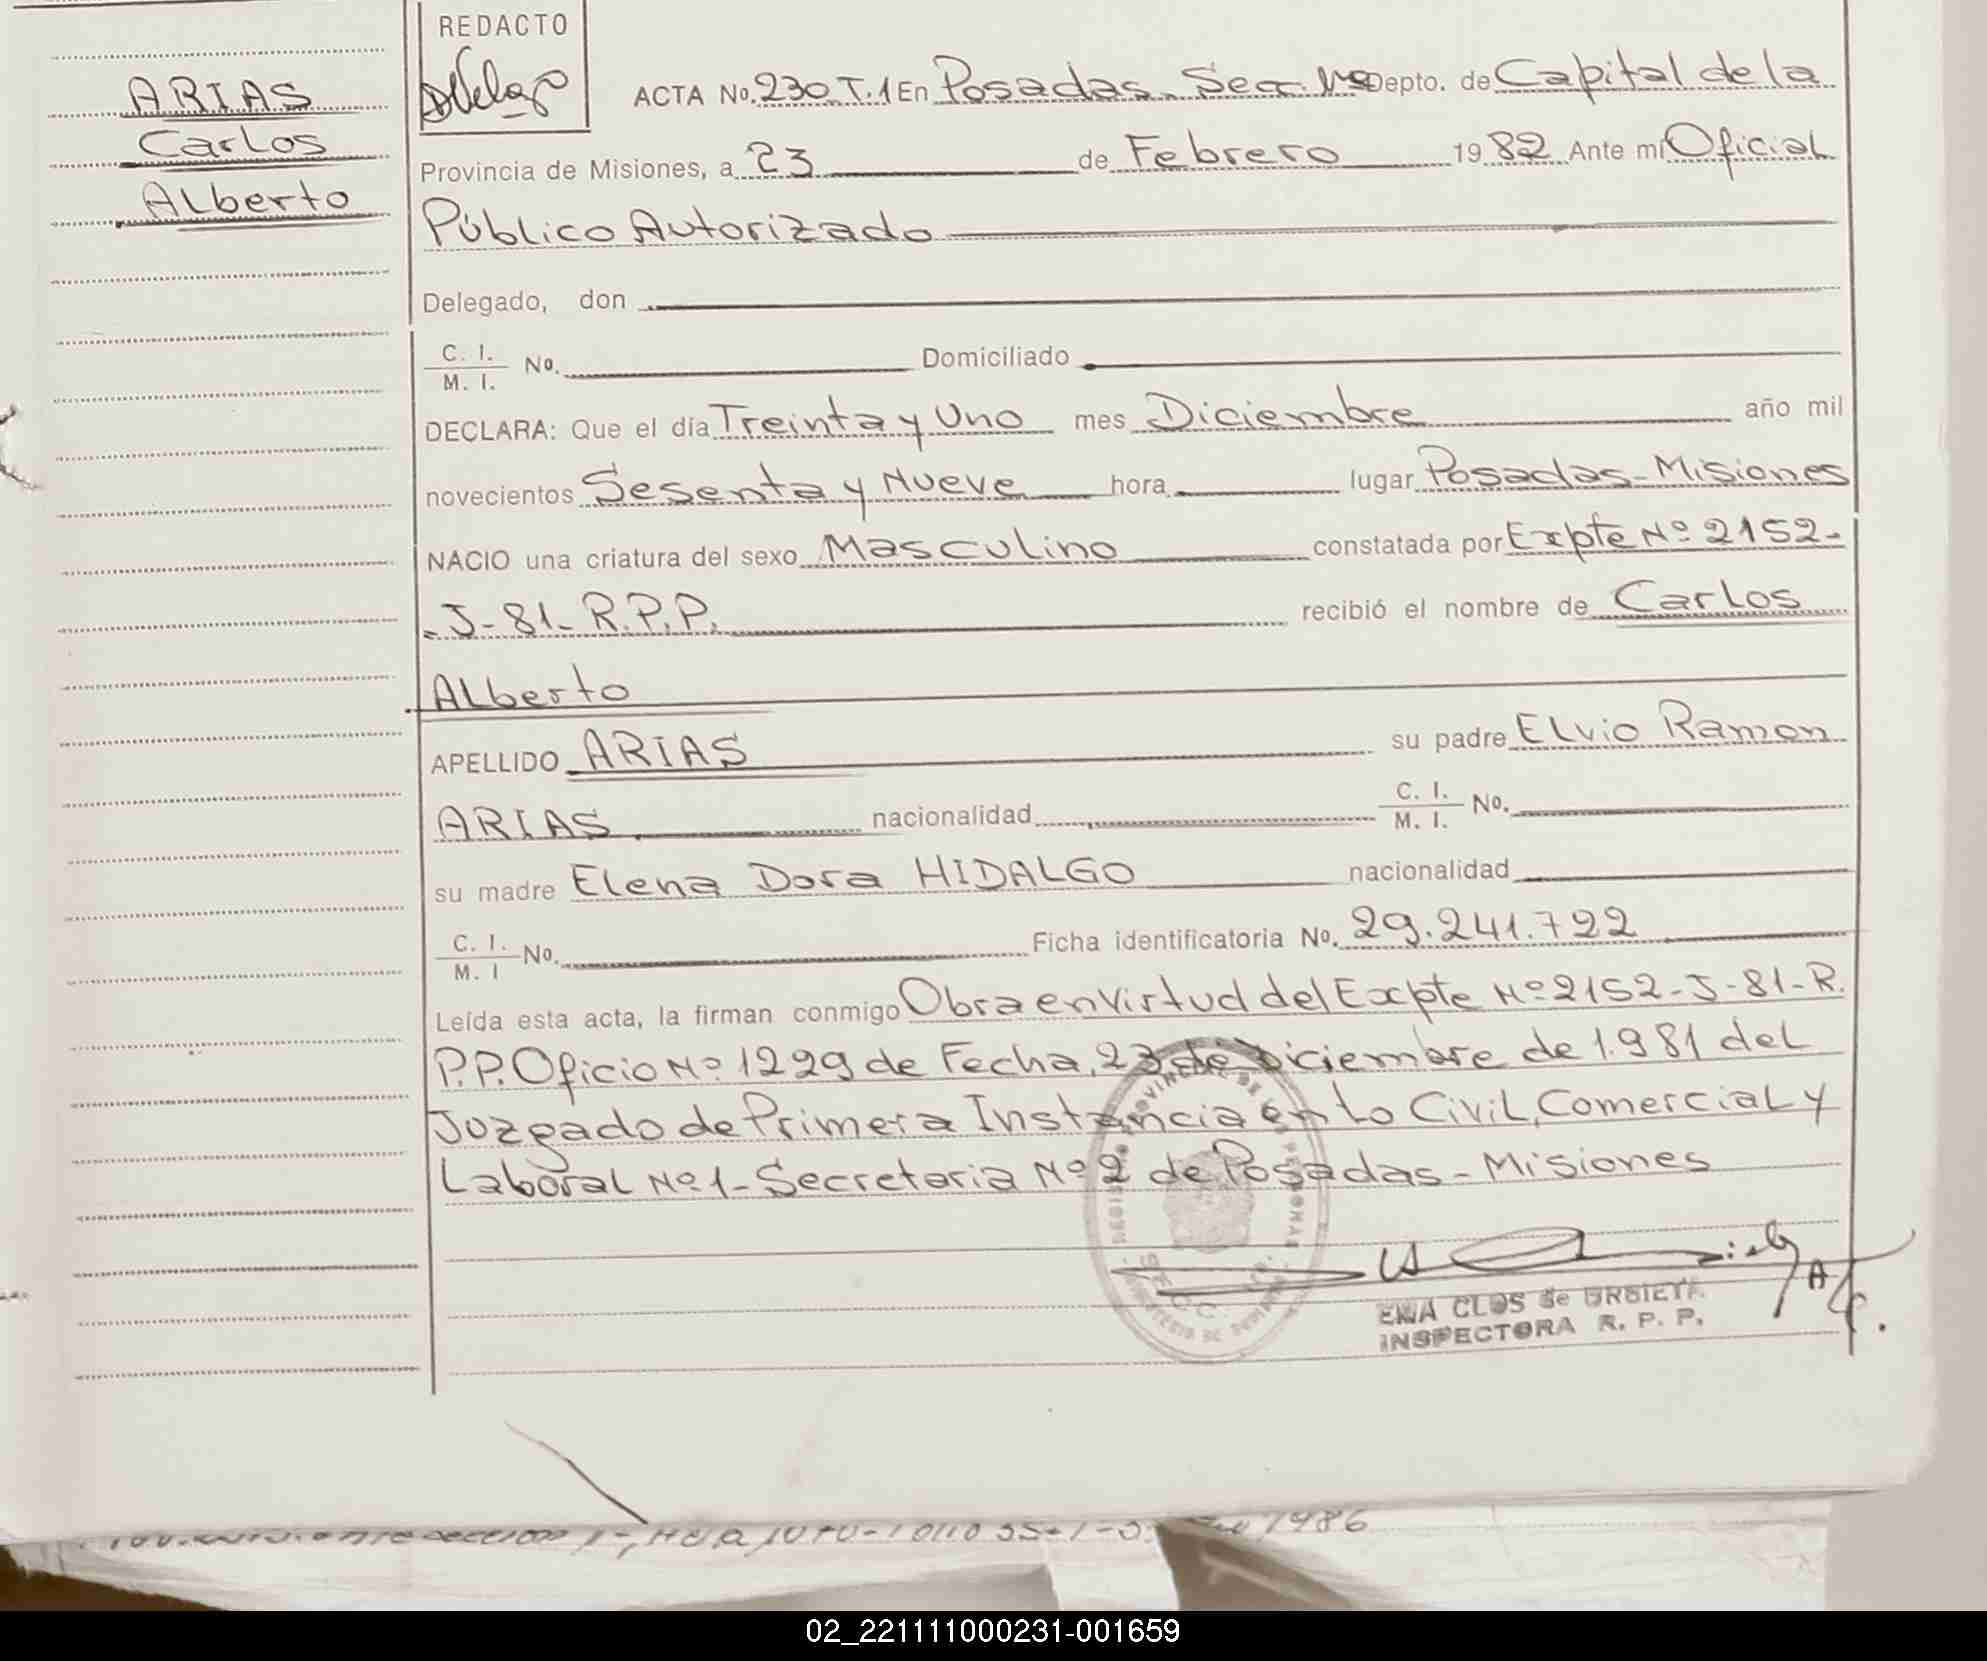 REDACTO
ARIAS
Carlos
Alberto
ACTA No. 230 T.1 En Posadas, Secc. 1ra Depto. de Capital de la
Provincia de Misiones, a 23 de Febrero 1982 Ante mí Oficial
Público Autorizado
Delegado, don
C. I.
M. I. No. Domiciliado
DECLARA: Que el día Treinta y Uno mes Diciembre año mil
novecientos Sesenta y Nueve hora lugar Posadas-Misiones
NACIO una criatura del sexo Masculino constatada por Expte Nº 2152-
-J-81-R.P.P. recibió el nombre de Carlos
Alberto
APELLIDO ARIAS su padre Elvio Ramon
ARIAS nacionalidad C. I.
M. I. No.
su madre Elena Dora HIDALGO nacionalidad
C. I.
M. I No. Ficha identificatoria No. 29.241.722
Leída esta acta, la firman conmigo Obra en Virtud del Expte Nº 2152-J-81-R.
P.P. Oficio Nº 1229 de Fecha, 23 de Diciembre de 1.981 del
Juzgado de Primera Instancia en lo Civil, Comercial y
Laboral Nº 1-Secretaria Nº 2 de Posadas-Misiones
EMA CLOS de URBIETA
INSPECTORA R. P. P.
1986
02_221111000231-001659